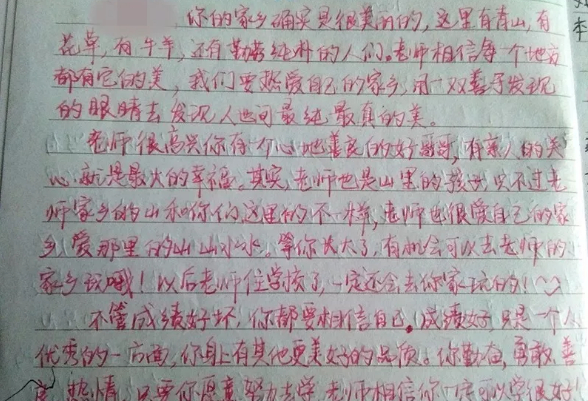 你的家乡确实是很美丽的,这里有青山,有
花草,有牛羊,还有勤劳纯朴的人们。老师相信每一个地方
都有它的美,我们要热爱自己的家乡,用一双善于发现
的眼睛去发现人世间最纯最真的美。
老师很高兴你有一个心地善良的好哥哥,有亲人的关
心就是最大的幸福。其实,老师也是山里的孩子,只不过老
师家乡的山和你们这里的不一样,老师也很爱自己的家
乡,爱那里的山山水水,等你长大了,有机会可以去老师的
家乡玩哦!以后老师住学校了,一定还会去你家玩的!
不管成绩好坏,你都要相信自己。成绩好只是一个人
优秀的一方面,你身上有其他更美好的品质。你勤奋,勇敢,善
热情,只要你愿意努力去学,老师相信你一定可以学很好